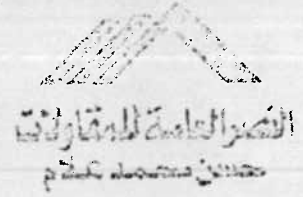 النصر العامة للمقاولات
حسن محمد علام